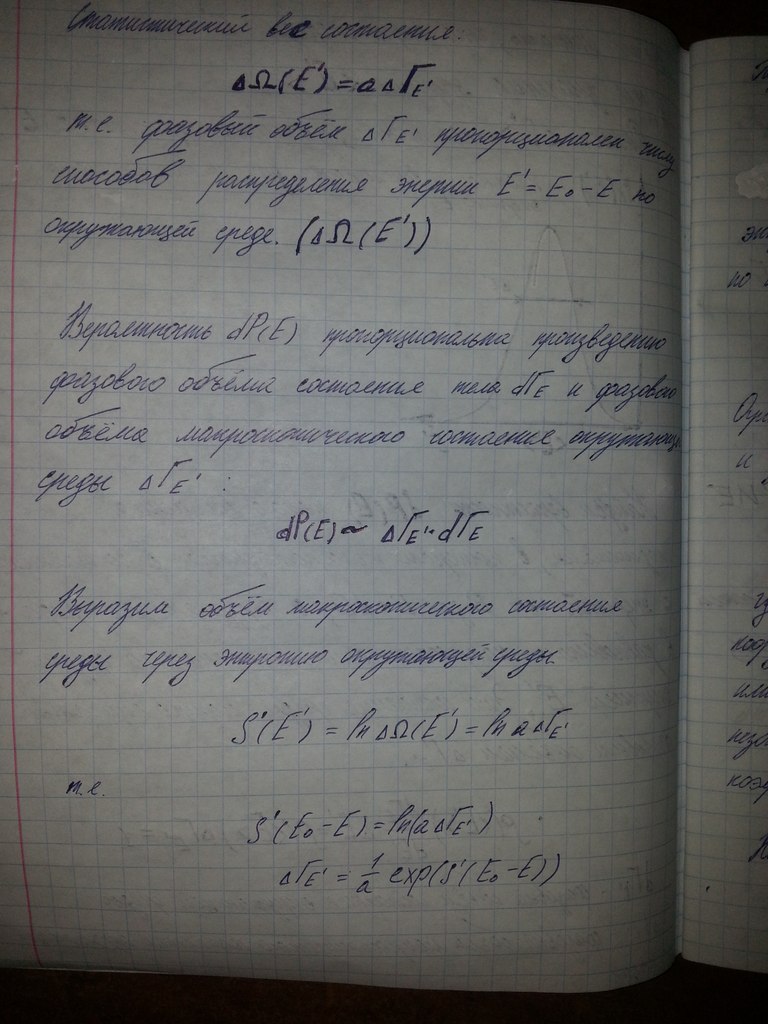 Статистический вес состояния:
ΔΩ(E') = aΔΓE'
т.е. фазовый объём ΔΓE' пропорционален числу
способов распределения энергии E' = E₀ - E по
окружающей среде. (ΔΩ(E'))
Вероятность dP(E) пропорциональна произведению
фазового объёма состояния тела dΓE и фазового
объёма макроскопического состояния окружающей
среды ΔΓE' :
dP(E) ~ ΔΓE'·dΓE
Выразим объём макроскопического состояния
среды через энтропию окружающей среды.
S'(E') = ln ΔΩ(E') = ln a ΔΓE'
т.е.
S'(E₀ - E) = ln(a ΔΓE')
ΔΓE' = 1/a exp(S'(E₀ - E))